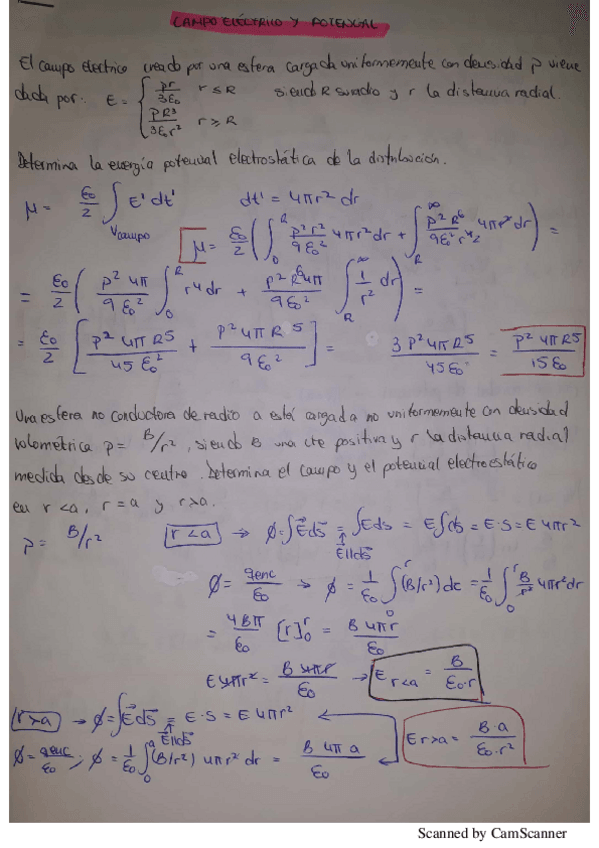 CAMPO ELÉCTRICO Y POTENCIAL
El campo electrico creado por una esfera cargada uniformemente con densidad ρ viene
dado por: E = { ρr/3ε₀ r ≤ R siendo R su radio y r la distancia radial.
ρR³/3ε₀r² r ≥ R
Determina la energía potencial electrostática de la distribución.
μ = ε₀/2 ∫Vcampo E² dτ' dτ' = 4πr² dr
μ = ε₀/2 ( ∫₀ᴿ ρ²r²/9ε₀² 4πr² dr + ∫_R^∞ ρ²R⁶/9ε₀²r⁴ 4πr² dr ) =
= ε₀/2 ( ρ²4π/9ε₀² ∫₀ᴿ r⁴ dr + ρ²R⁶4π/9ε₀² ∫_R^∞ 1/r² dr ) =
= ε₀/2 [ ρ²4πR5/45ε₀² + ρ²4πR5/9ε₀² ] = 3ρ²4πR5/45ε₀ = ρ²4πR5/15ε₀
Una esfera no conductora de radio a está cargada no uniformemente con densidad
volométrica ρ = B/r², siendo B una cte positiva y r la distancia radial
medida desde su centro. Determina el campo y el potencial electroestático
en r < a, r = a y r > a.
ρ = B/r² r < a → Φ = ∫E⃗ds⃗ = ∫Eds = E∫ds = E·S = E4πr²
E⃗||ds⃗
Φ = qenc/ε₀ → Φ = 1/ε₀ ∫₀ʳ (B/r²) dτ = 1/ε₀ ∫₀ʳ B/r² 4πr² dr
= 4Bπ/ε₀ [r]₀ʳ = B4πr/ε₀
E4πr² = B4πr/ε₀ → E r<a = B/ε₀·r
r > a → Φ = ∫E⃗ds⃗ = E·S = E4πr²
E⃗||ds⃗
E r>a = B·a/ε₀·r²
Φ = qenc/ε₀ ; Φ = 1/ε₀ ∫₀ᵃ (B/r²) 4πr² dr = B4πa/ε₀
Scanned by CamScanner